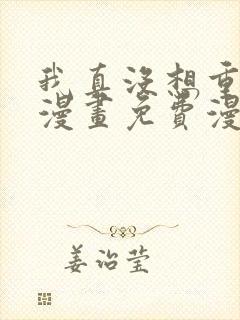 我真没想重
漫畫免費漫
姜治莹